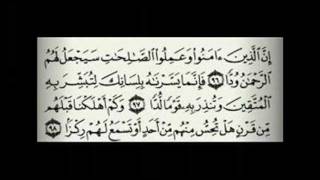 إِنَّ ٱلَّذِينَ ءَامَنُوا۟ وَعَمِلُوا۟ ٱلصَّٰلِحَٰتِ سَيَجْعَلُ لَهُمُ
ٱلرَّحْمَٰنُ وُدًّا ٩٦ فَإِنَّمَا يَسَّرْنَٰهُ بِلِسَانِكَ لِتُبَشِّرَ بِهِ
ٱلْمُتَّقِينَ وَتُنذِرَ بِهِۦ قَوْمًا لُّدًّا ٩٧ وَكَمْ أَهْلَكْنَا قَبْلَهُم
مِّن قَرْنٍ هَلْ تُحِسُّ مِنْهُم مِّنْ أَحَدٍ أَوْ تَسْمَعُ لَهُمْ رِكْزًۢا ٩٨